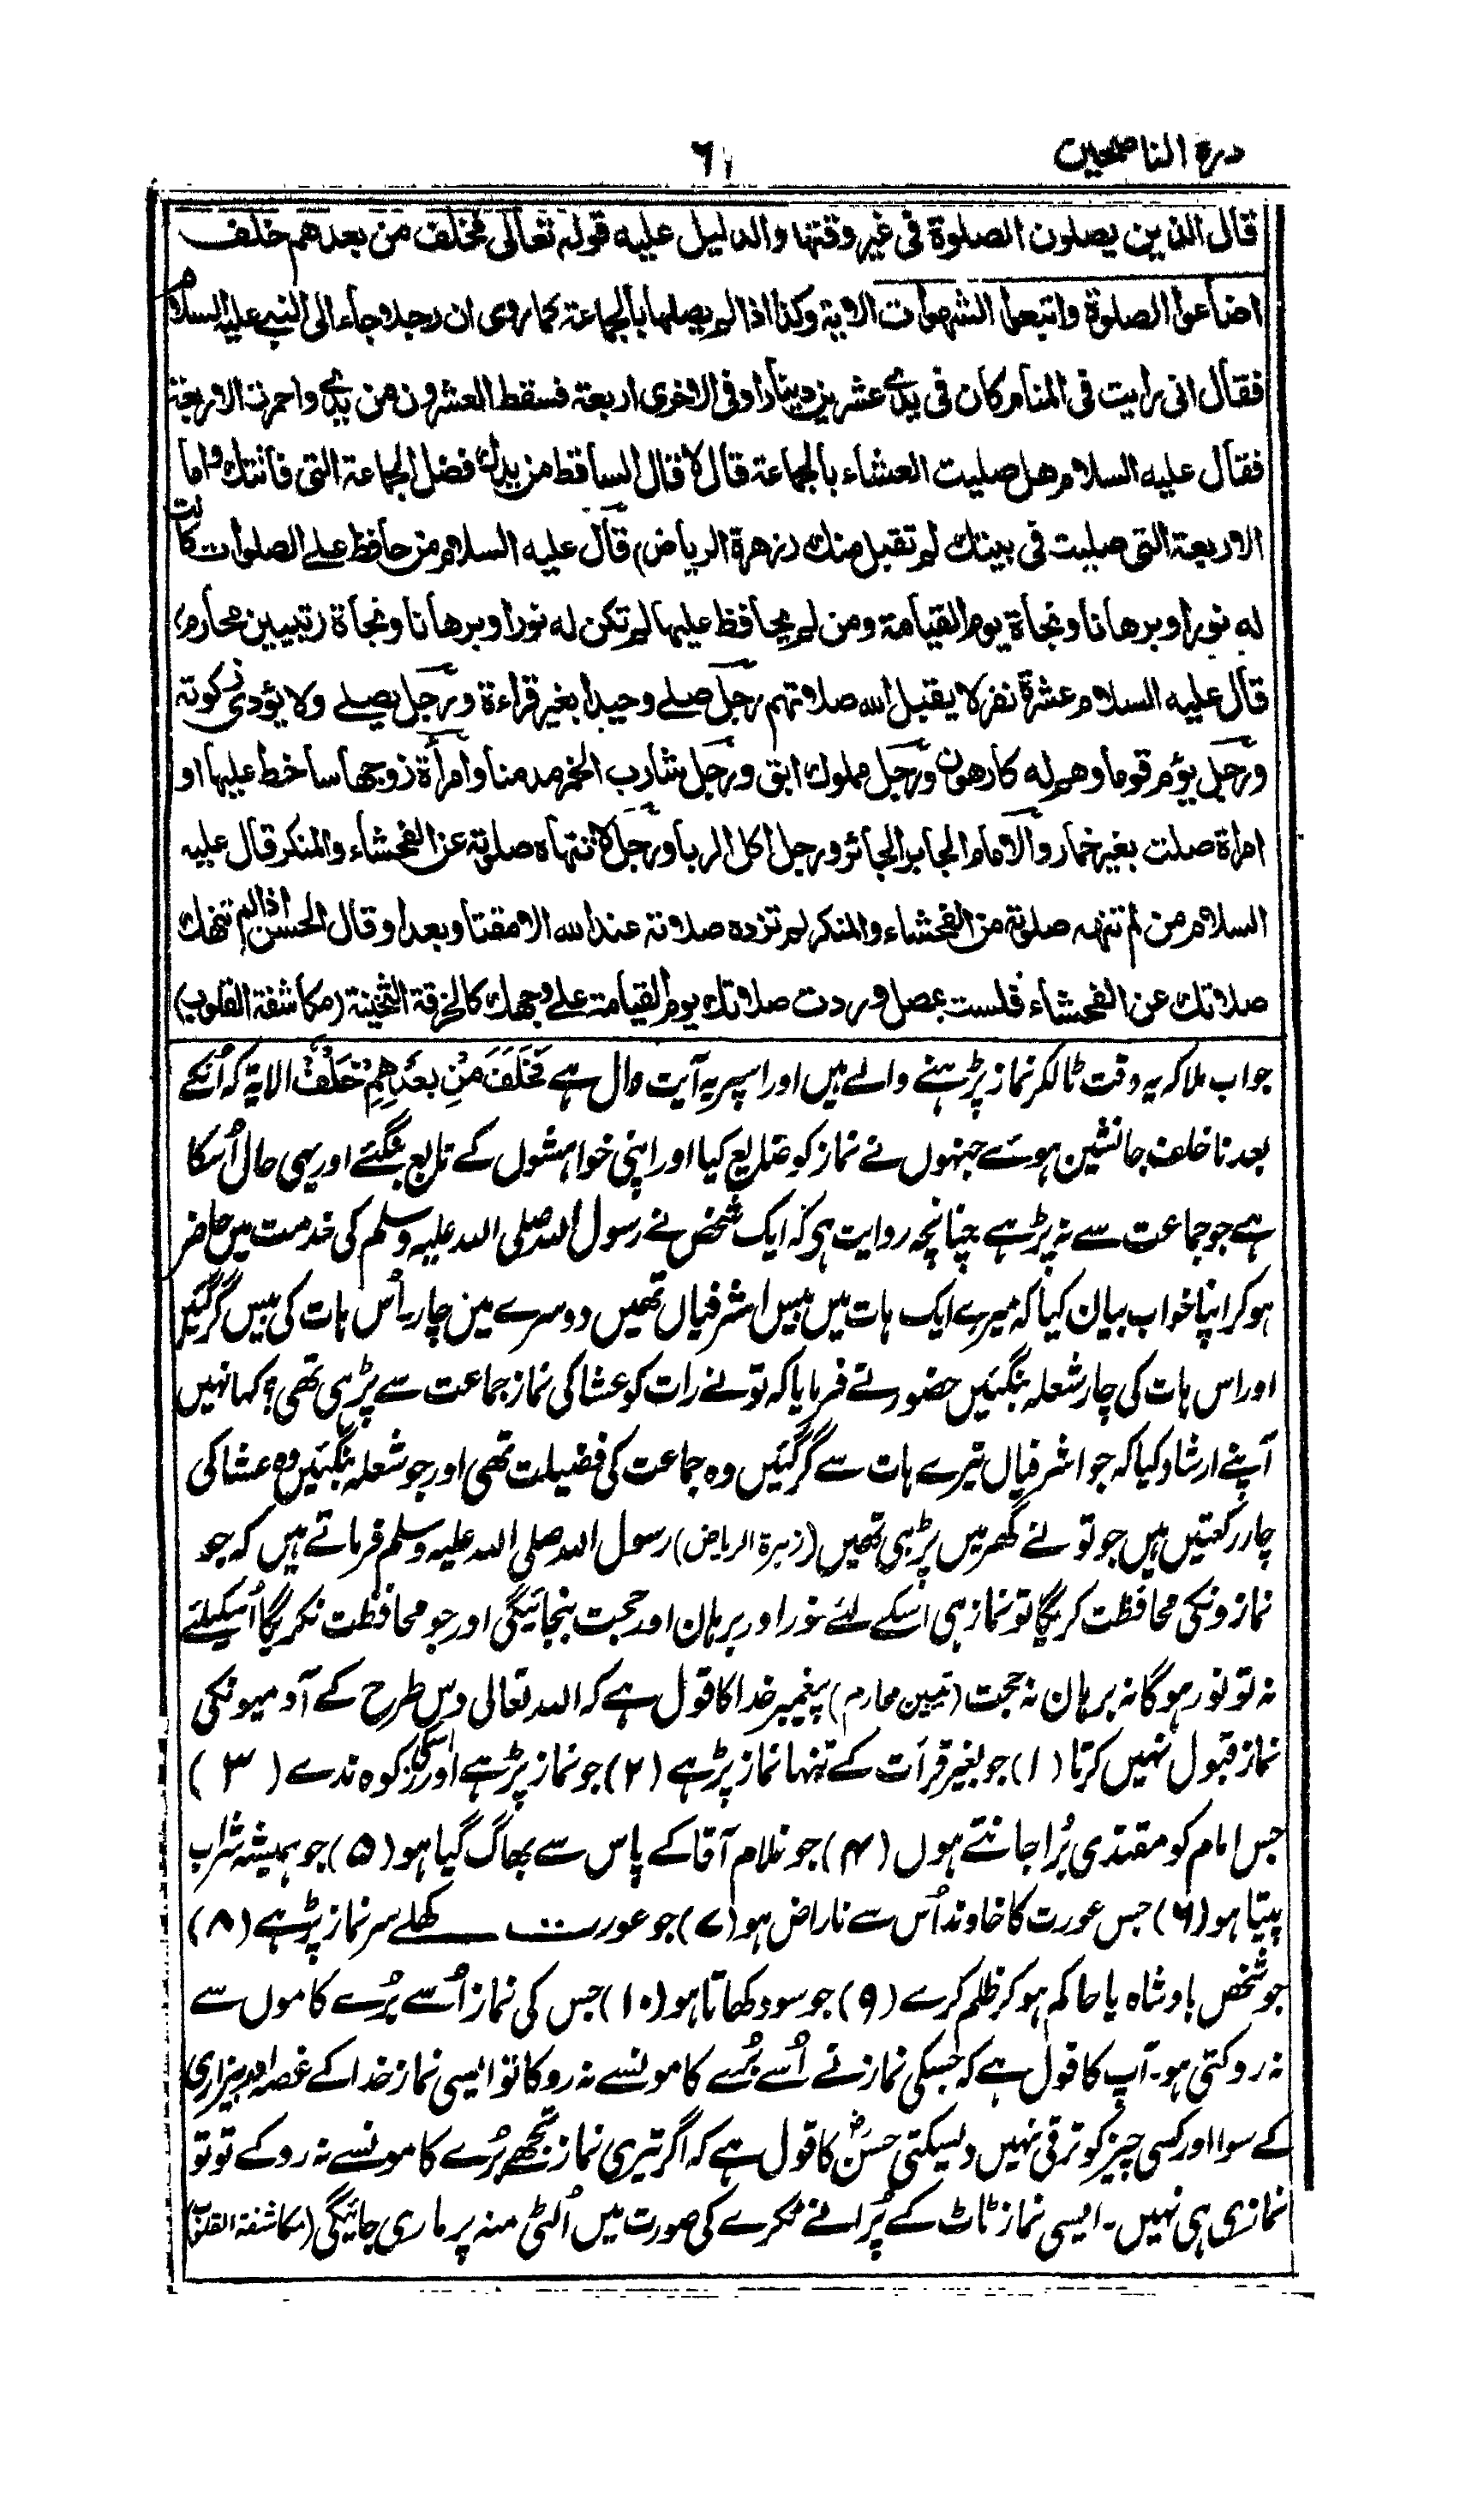 درة الناصحين
٦١
قال الذين يصلون الصلوة فى غير وقتها والدليل عليه قوله تعالى فخلف من بعدهم خلف
اضاعوا الصلوة واتبعوا الشهوات الاية وكذا اذا لم يصلها بالجماعة كما روى ان رجلا جاء الى النبى عليه السلام
فقال انى رايت فى المنام كان فى يدى عشرين دينارا وفى الاخرى اربعة فسقط العشرون من يدى واحمرت الاربعة
فقال عليه السلام هل صليت العشاء بالجماعة قال لا قال الساقط من يدك فضل الجماعة التى فاتتك واما
الاربعة التى صليت فى بيتك لم تقبل منك (زهرة الرياض) قال عليه السلام من حافظ على الصلوات كانت
له نورا وبرهانا ونجاة يوم القيامة ومن لم يحافظ عليها لم تكن له نورا وبرهانا ونجاة (تبيين محارم)
قال عليه السلام عشرة نفر لا يقبل الله صلاتهم رجل صلى وحيدا بغير قراءة ورجل يصلى ولا يؤدى زكوته
ورجل يؤم قوما وهم له كارهون ورجل مملوك ابق ورجل شارب الخمر مدمنا وامرأة زوجها ساخط عليها او
امراة صلت بغير خمار والامام الجابر الجائر ورجل اكل الربا ورجل لا تنهاه صلوته عن الفحشاء والمنكر قال عليه
السلام من لم تنهه صلوته من الفحشاء والمنكر لم تزده صلاته عند الله الا مقتا وبعدا وقال الحسن اذا لم تنهك
صلاتك عن الفحشاء فلست بمصل وردت صلاتك يوم القيامة على وجهك كالخرقة الثخينة (مكاشفة القلوب)
جواب ملا کہ یہ وقت ٹالکر نماز پڑھنے والے ہیں اور اسپر یہ آیت دال ہے فَخَلَفَ مِنْ بَعْدِهِمْ خَلْفٌ الایة کہ اُنکے
بعد ناخلف جانشین ہوئے جنہوں نے نماز کو ضایع کیا اور اپنی خواہشوں کے تابع بنگئے اور یہی حال اُسکا
ہے جو جماعت سے نہ پڑہے چنانچہ روایت ہی کہ ایک شخص نے رسول اللہ صلی اللہ علیہ وسلم کی خدمت میں حاضر
ہو کر اپنا خواب بیان کیا کہ میرے ایک ہات میں بیس اشرفیاں تھیں دوسرے مین چار۔ اُس ہات کی بیس گر گئیں
اور اس ہات کی چار شعلہ بنگئیں حضور نے فرمایا کہ تو نے رات کو عشا کی نماز جماعت سے پڑہی تھی؟ کہا نہیں
آپنے ارشاد کیا کہ جو اشرفیاں تیرے ہات سے گر گئیں وہ جماعت کی فضیلت تھی اور جو شعلہ بنگئیں وہ عشا کی
چار رکعتیں ہیں جو تو نے گھر میں پڑہی تھیں (زہرة الریاض) رسول اللہ صلی اللہ علیہ وسلم فرماتے ہیں کہ جو
نمازونکی محافظت کریگا تو نماز ہی اسکے لئے نور اور برہان اور حجت بنجائیگی اور جو محافظت نکریگا اُسکیلئے
نہ تو نور ہو گا نہ برہان نہ حجت (تبیین محارم) پیغمبر خدا کا قول ہے کہ اللہ تعالی دس طرح کے آدمیونکی
نماز قبول نہیں کرتا (١) جو بغیر قرآت کے تنہا نماز پڑہے (٢) جو نماز پڑہے اور اسکی زکوٰہ ندے (٣)
جس امام کو مقتدی بُرا جانتے ہوں (۴) جو غلام آقا کے پاس سے بھاگ گیا ہو (۵) جو ہمیشہ شراب
پیتا ہو (۶) جس عورت کا خاوند اُس سے ناراض ہو (۷) جو عورت کھلے سر نماز پڑہے (۸)
جو شخص بادشاہ یا حاکم ہو کر ظلم کرے (۹) جو سود کھاتا ہو (۱۰) جس کی نماز اُسے بُرے کاموں سے
نہ روکتی ہو۔ آپ کا قول ہے کہ جسکی نماز نے اُسے بُرے کامونسے نہ روکا تو ایسی نماز خدا کے غصہ اور بیزاری
کے سوا اور کسی چیز کو ترقی نہیں دیسکتی حسنؓ کا قول ہے کہ اگر تیری نماز تجھے بُرے کامونسے نہ روکے تو تو
نمازی ہی نہیں۔ ایسی نماز ٹاٹ کے پُرانے ٹکرے کی صورت میں اُلٹی منہ پر ماری جائیگی (مکاشفة القلوب)